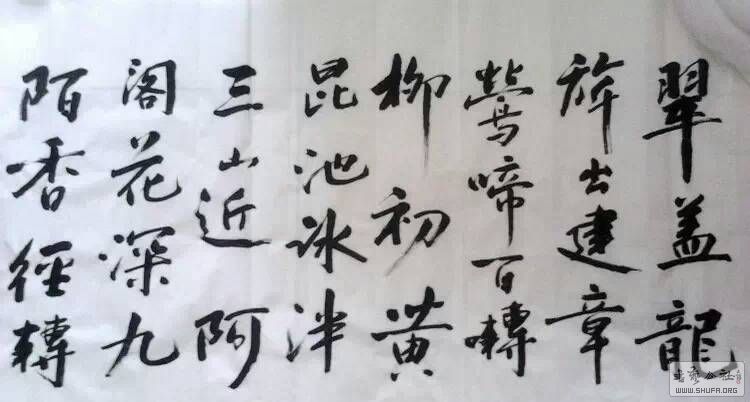 翠盖龍
旂出建章
鶯啼百囀
柳初黄
昆池冰泮
三山近阿
阁花深九
陌香徑轉
书艺公社
WWW.SHUFA.ORG